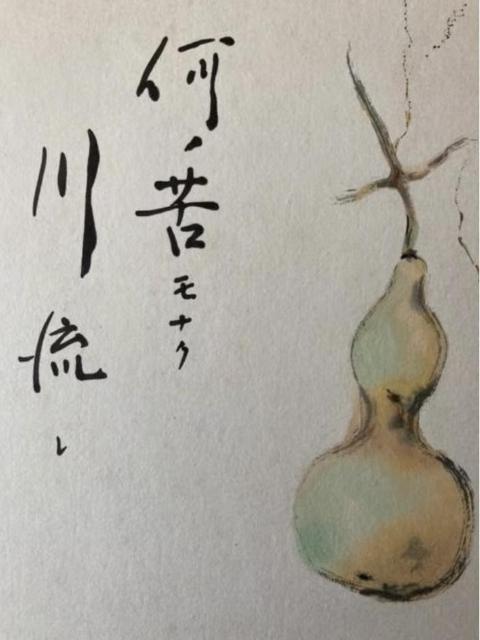 何ノ苦モナク
川流レ